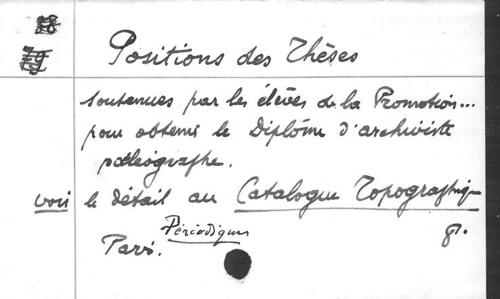 Positions des Thèses
soutenues par les élèves de la Promotion...
pour obtenir le Diplôme d'archiviste
paléographe.
voir le détail au Catalogue Topographiq
Périodiques 8°.
Paris.